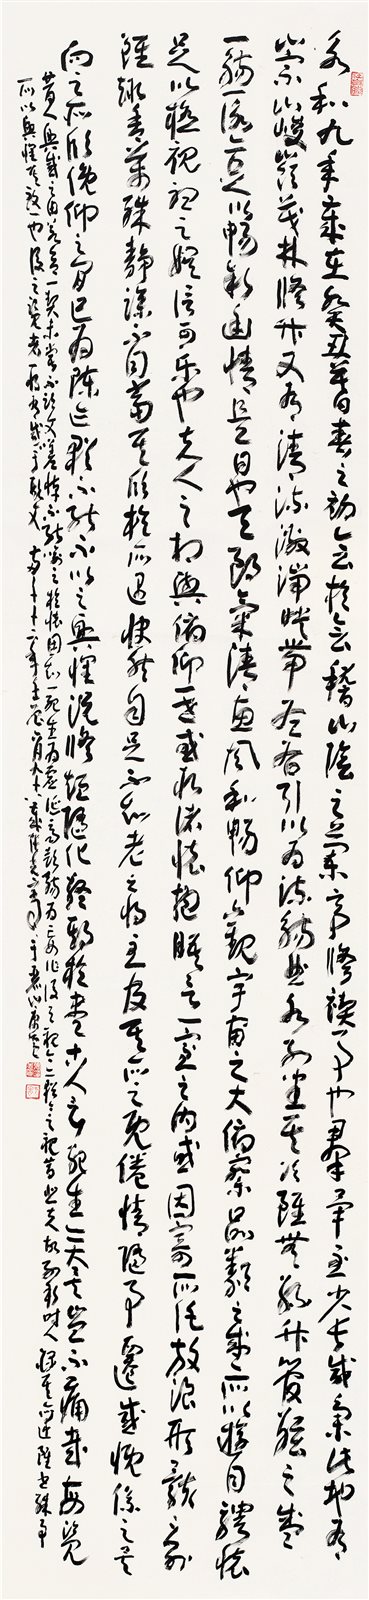 永和九年歲在癸丑暮春之初會於會稽山陰之蘭亭修禊事也羣賢畢至少長咸集此地有
崇山峻嶺茂林修竹又有清流激湍映帶左右引以為流觴曲水列坐其次雖無絲竹管絃之盛
一觴一詠亦足以暢敘幽情是日也天朗氣清惠風和暢仰觀宇宙之大俯察品類之盛所以遊目騁懷
足以極視聽之娛信可樂也夫人之相與俯仰一世或取諸懷抱晤言一室之內或因寄所託放浪形骸之外
雖趣舍萬殊靜躁不同當其欣於所遇快然自足不知老之將至及其所之既倦情隨事遷感慨係之矣
向之所欣俛仰之間已為陳迹猶不能不以之興懷況修短隨化終期於盡古人云死生亦大矣豈不痛哉每覽
昔人興感之由若合一契未嘗不臨文嗟悼不能喻之於懷固知一死生為虛誕齊彭殤為妄作後之視今亦猶今之視昔悲夫故列敘時人錄其所述雖世殊事
所以興懷其致一也後之覽者亦將有感於斯文